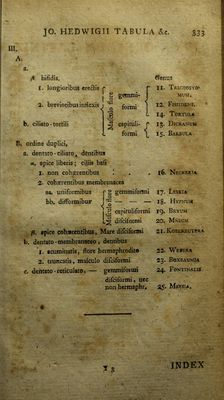 JO. HEDWIGII TABULA &c. 333
III.
A.
a.
β. bifidis. Genus
1. longioribus erectis 11. TRICHOSTOMUM.
2. brevioribus inflexis Masculo flore gemmiformi 12. FISSIDENS.
14. TORTULA
b. ciliato-tortili capituliformi 13. DICRANUM
15. BARBULA.
B. ordine duplici,
a. dentato-ciliato, dentibus
α. apice liberis; ciliis basi
1. non cohærentibus : : 16. NECKERIA
2. cohærentibus membranaceo
aa. uniformibus Masculo flore gemmiformi 17. LESKIA
bb. difformibus — 18. HYPNUM
capituliformi 19. BRYUM
disciformi 20. MNIUM
β. apice cohærentibus, Mare disciformi 21. KOELREUTERA
b. dentato-membranaceo, dentibus
1. acuminatis, flore hermaphrodito 22. WEBERA
2. truncatis, masculo disciformi 23. BUXBAUMIA
c. dentato-reticulato, — gemmiformi 24. FONTINALIS
disciformi, nec non hermaphr. 25. MEESIA.
INDEX